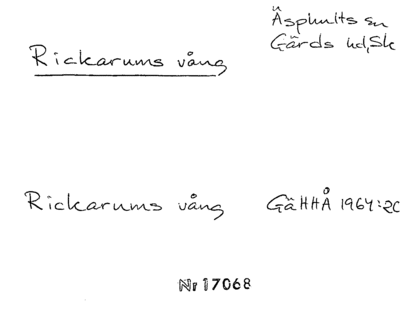 Äsphults sn
Gärds hd, Sk
Rickarums vång
Rickarums vång GäHHÅ 1964:20
Nr 17068